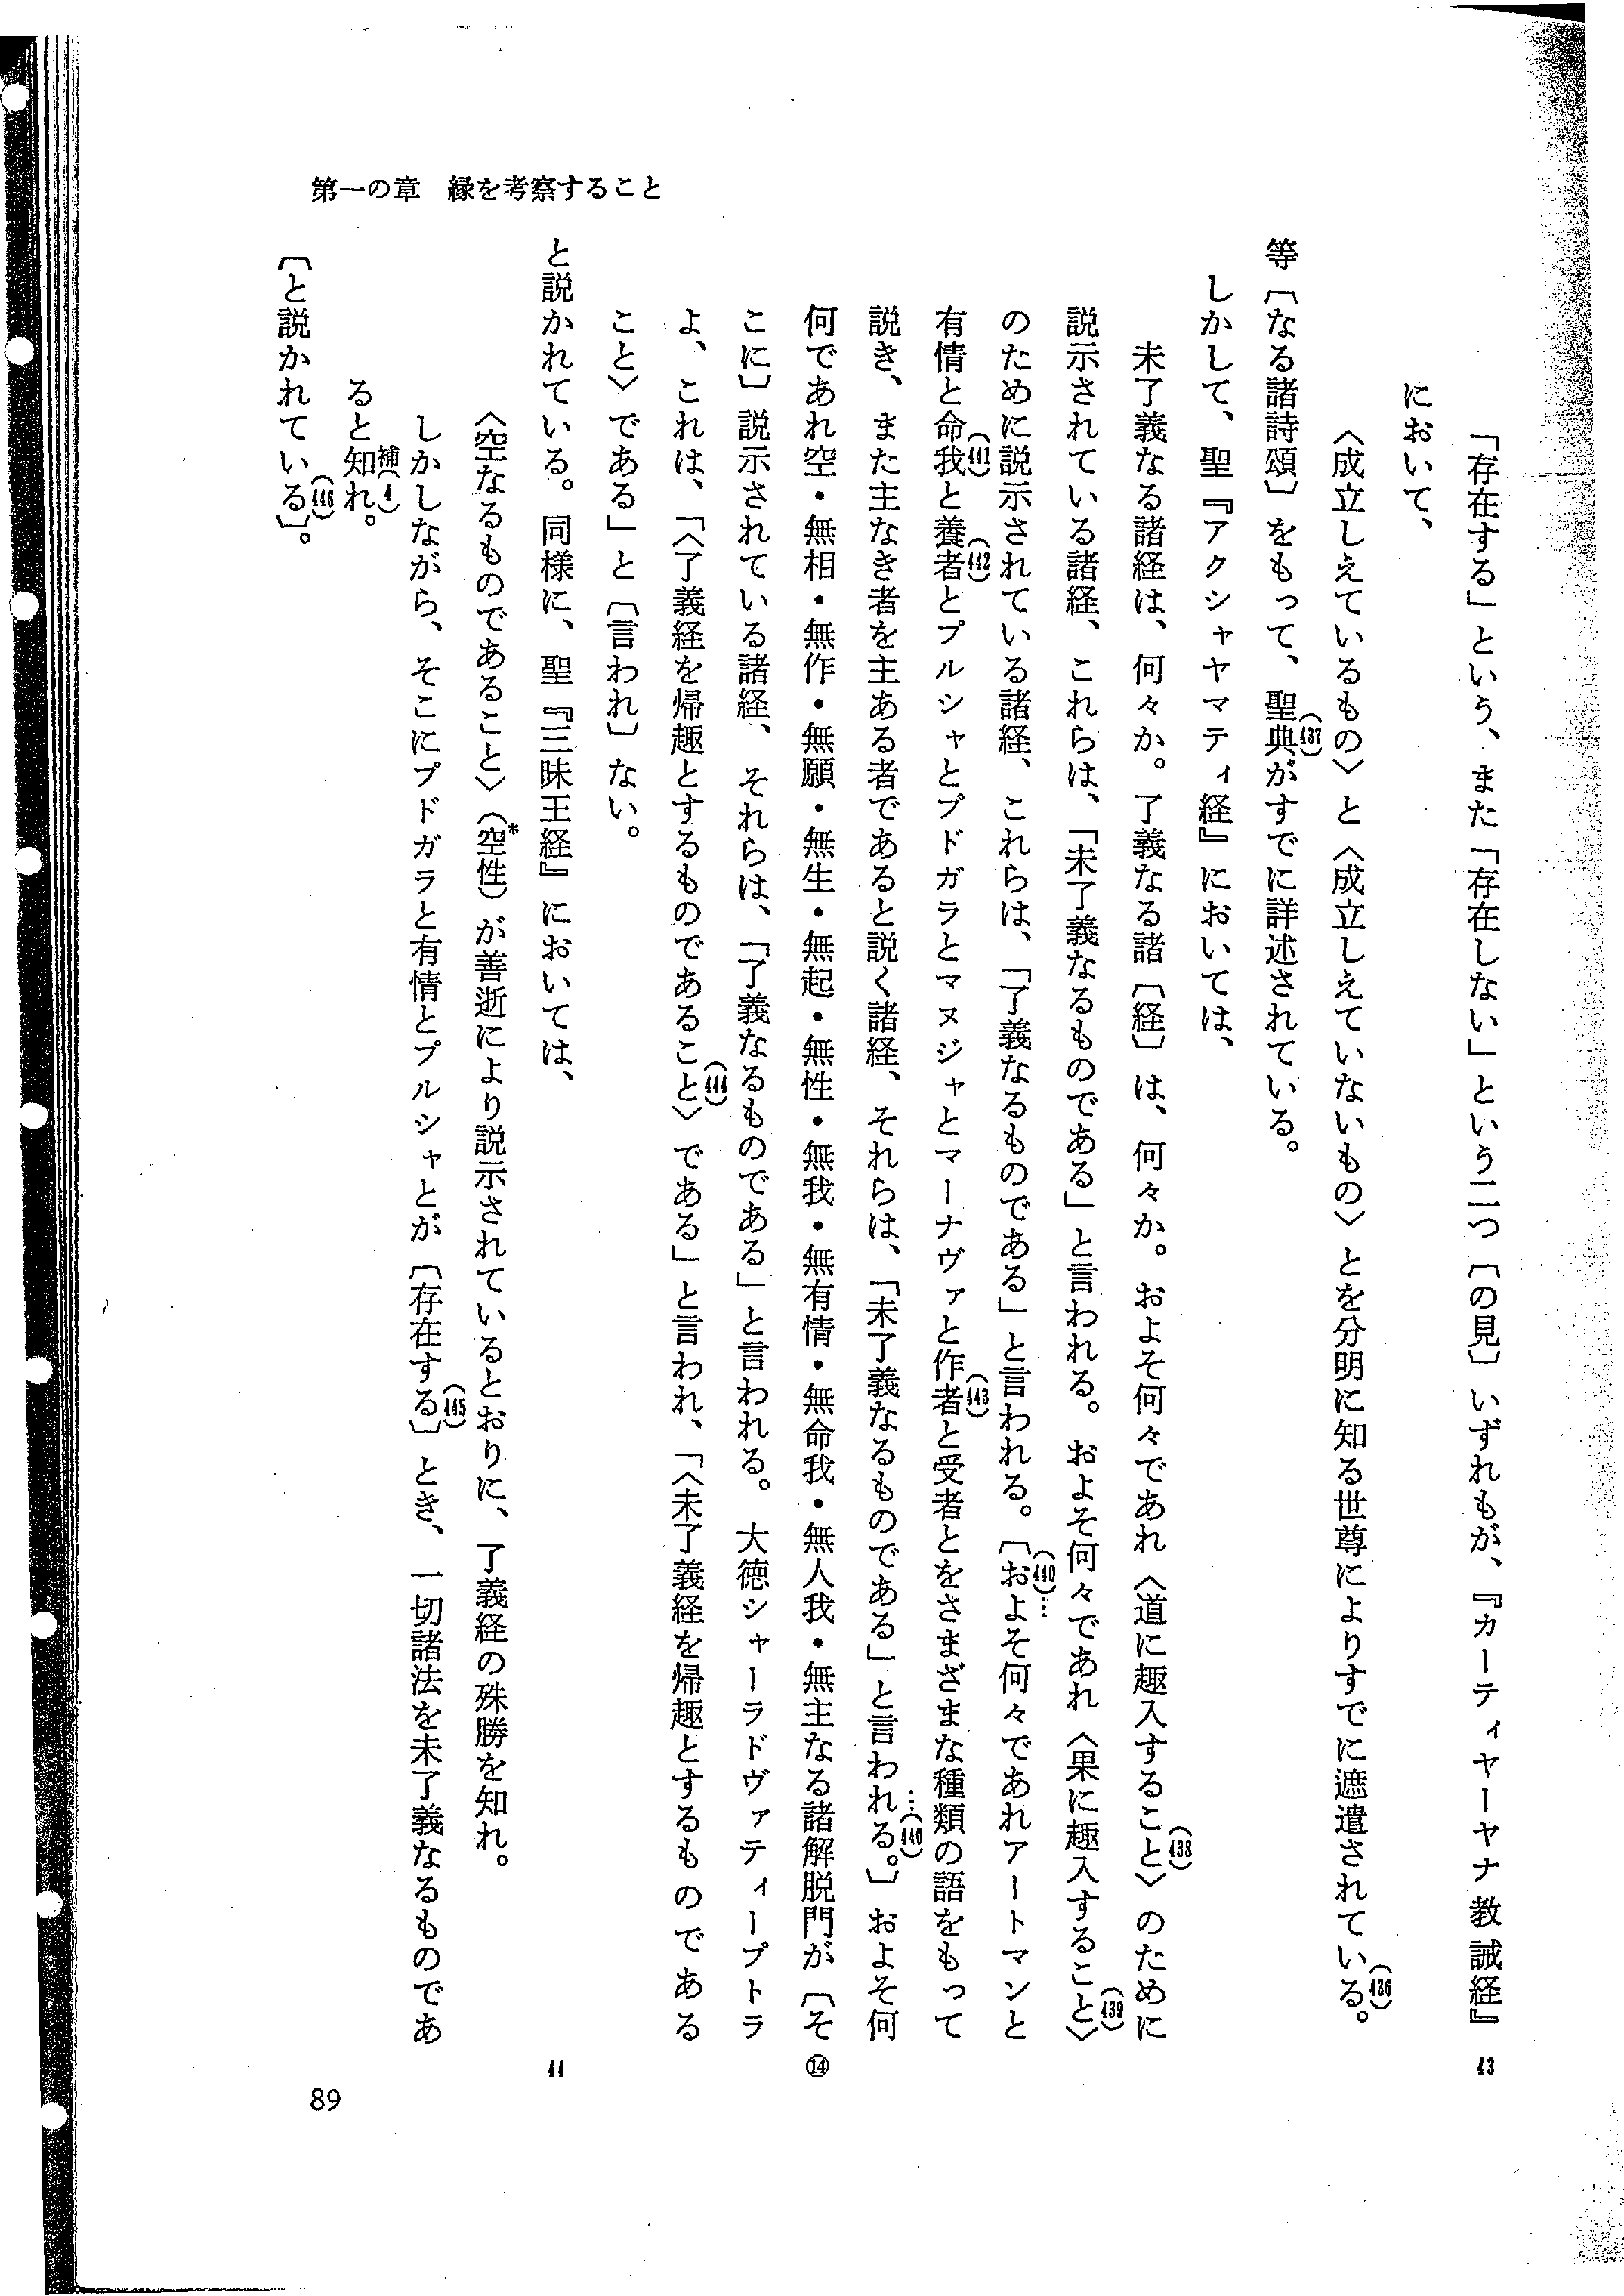 第一の章　縁を考察すること
「存在する」という、また「存在しない」という二つ〔の見〕いずれもが、『カーティヤーヤナ教誡経』
において、
〈成立しえているもの〉と〈成立しえていないもの〉とを分明に知る世尊によりすでに遮遣されている。(436)
等〔なる諸詩頌〕をもって、聖典(437)がすでに詳述されている。
しかして、聖『アクシャヤマティ経』においては、
未了義なる諸経は、何々か。了義なる諸〔経〕は、何々か。およそ何々であれ〈道に趣入すること(438)〉のために
説示されている諸経、これらは、「未了義なるものである」と言われる。およそ何々であれ〈果に趣入すること(439)〉
のために説示されている諸経、これらは、「了義なるものである」と言われる。〔(440)…およそ何々であれアートマンと
有情と命我(441)と養者(442)とプルシャとプドガラとマヌジャとマーナヴァと作者(443)と受者とをさまざまな種類の語をもって
説き、また主なき者を主ある者であると説く諸経、それらは、「未了義なるものである」と言われる。…(440)〕およそ何
何であれ空・無相・無作・無願・無生・無起・無性・無我・無有情・無命我・無人我・無主なる諸解脱門が〔そ
こに〕説示されている諸経、それらは、「了義なるものである」と言われる。大徳シャーラドヴァティープトラ
よ、これは、「〈了義経を帰趣とするものであること(444)〉である」と言われ、「〈未了義経を帰趣とするものである
こと〉である」と〔言われ〕ない。
と説かれている。同様に、聖『三昧王経』においては、
〈空なるものであること〉（空性*）が善逝により説示されているとおりに、了義経の殊勝を知れ。
しかしながら、そこにプドガラと有情とプルシャとが〔存在する(445)〕とき、一切諸法を未了義なるものであ
ると知れ補(4)。
〔と説かれている(446)〕。
43
⑭
44
89